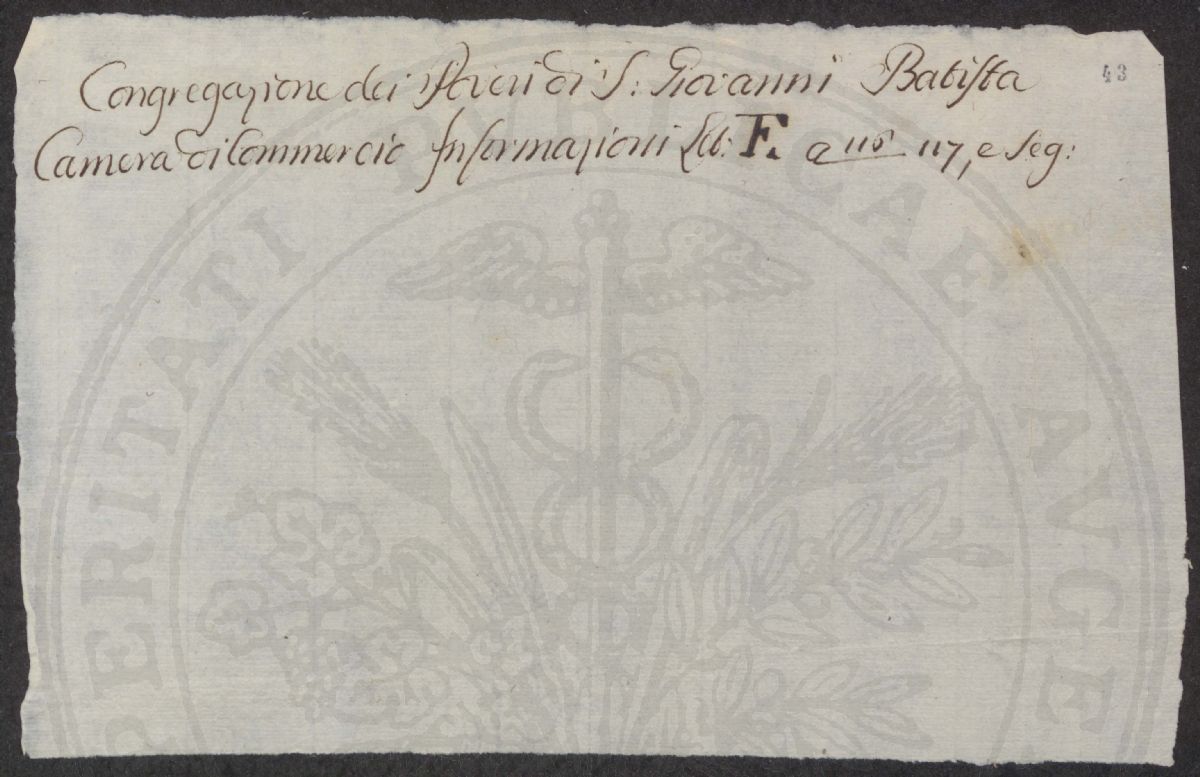 43
Congregazione dei di S: Giovanni Batista
Camera di Commercio Informazioni F. a 116 117, e seg:
PERITATI PVBLICAE AVGE